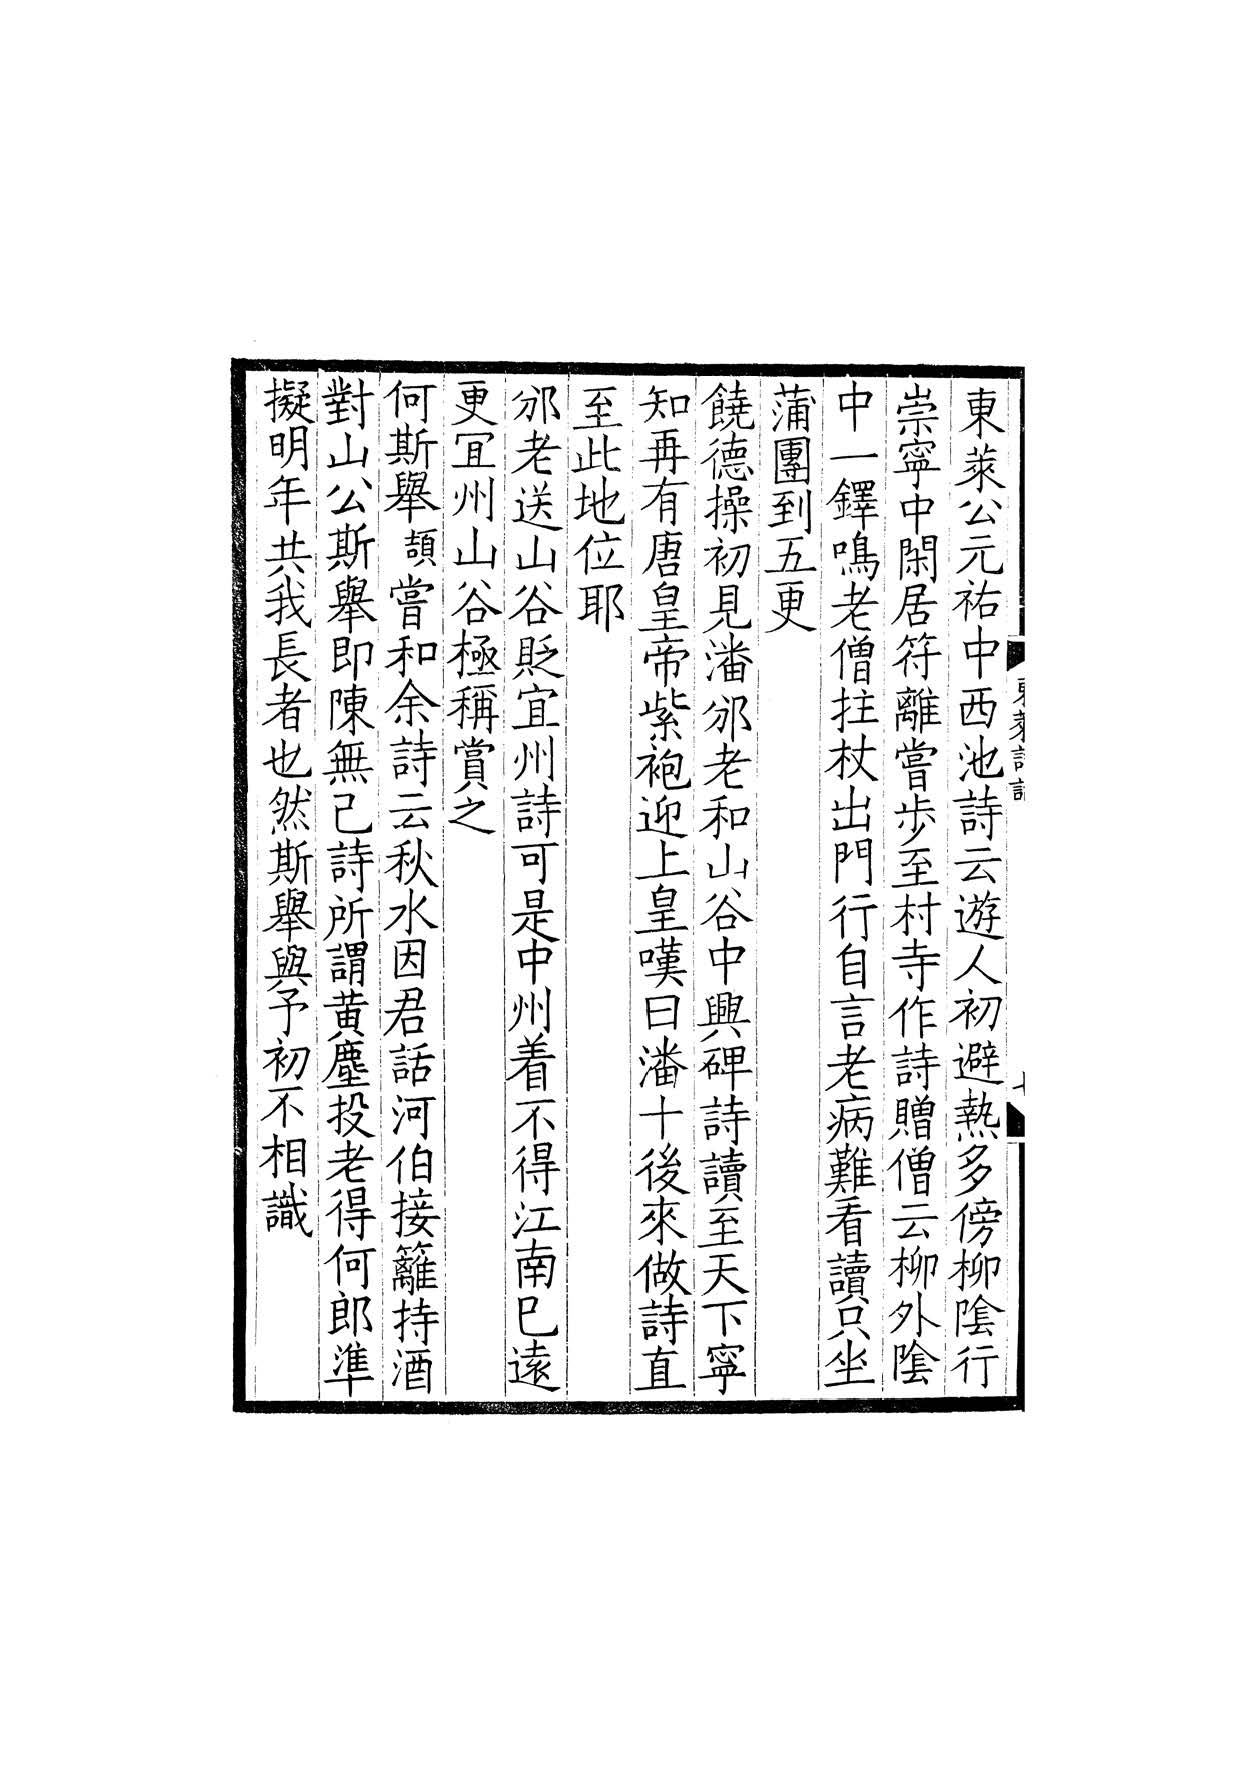 東萊公元祐中西池詩云遊人初避熱多傍柳陰行
崇寧中閑居符離嘗步至村寺作詩贈僧云柳外陰
中一鐸鳴老僧拄杖出門行自言老病難看讀只坐
蒲團到五更
饒德操初見潘邠老和山谷中興碑詩讀至天下寧
知再有唐皇帝紫袍迎上皇嘆曰潘十後來做詩直
至此地位耶
邠老送山谷貶宜州詩可是中州着不得江南已遠
更宜州山谷極稱賞之
何斯舉頡嘗和余詩云秋水因君話河伯接籬持酒
對山公斯舉即陳無己詩所謂黄塵投老得何郎準
擬明年共我長者也然斯舉與予初不相識